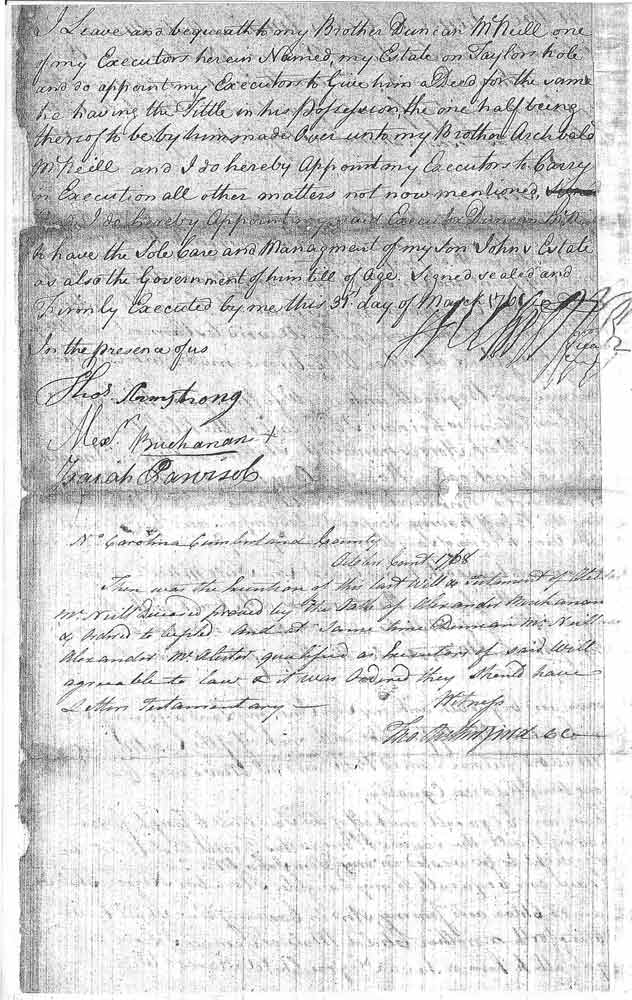 I Leave and bequeath to my Brother Duncan McNeill one
of my Executors herein Named, my Estate on Taylors hole
and do appoint my Executors to Give him a Deed for the same
he having the Tittle in his Possession, the one half being
thereof to be by him made Over unto my Brother Archibald
McNeill and I do hereby Appoint my Executors to Carry
in Execution all other matters not now mentioned,
I do hereby Appoint my said Executor Duncan
to have the Sole Care and Managment of my Son Johns Estate
as also the Government of him till of Age. Signed sealed and
Firmly Executed by me this 31st day of March
In the presence of us
Thos. Armstrong
Alexr. Buchanan +
Isaiah Parvisol
No. Carolina Cumberland County
Court 1768
Then was the Execution of this last Will & Testament of
McNeill proved by the Oath of Alexander Buchanan
& Ordred to be And at Same time Duncan McNeill
Alexander McAlester qualified as Executors of said Will
agreable to law & it was Ordred they Should have
Letters Testamentary
Witness
Thos. CC